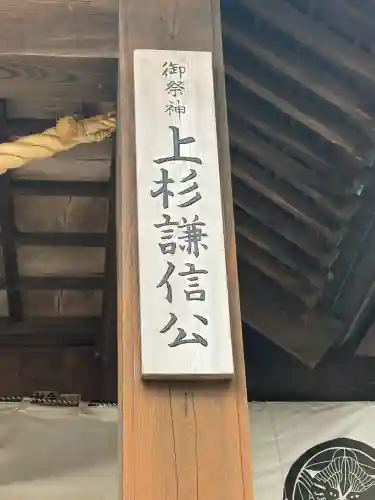 御祭神
上杉謙信公